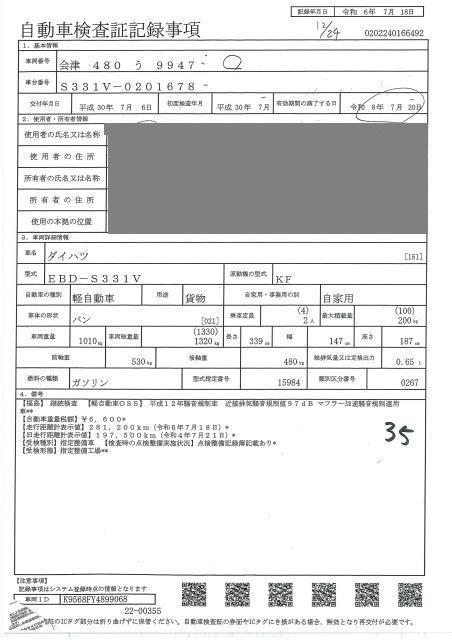 記録年月日 令和 6年 7月 18日
12/24
自動車検査証記録事項 0202240166492
1.基本情報
車両番号 会津 480 う 9947
車台番号 S331V-0201678
交付年月日 平成 30年 7月 6日 初度検査年月 平成 30年 7月 有効期間の満了する日 令和 8年 7月 20日
2.使用者・所有者情報
使用者の氏名又は名称
使用者の住所
所有者の氏名又は名称
所有者の住所
使用の本拠の位置
3.車両詳細情報
車名 ダイハツ [151]
型式 EBD-S331V 原動機の型式 KF
自動車の種別 軽自動車 用途 貨物 自家用・事業用の別 自家用
車体の形状 バン [021] 乗車定員 (4) 2人 最大積載量 (100) 200kg
車両重量 1010kg 車両総重量 (1330) 1320kg 長さ 339cm 幅 147cm 高さ 187cm
前軸重 530kg 後軸重 480kg 総排気量又は定格出力 0.65 L
燃料の種類 ガソリン 型式指定番号 15984 類別区分番号 0267
4.備考
【福島】 継続検査 【軽自動車OSS】 平成12年騒音規制車 近接排気騒音規制値97dB マフラー加速騒音規制適用
車**
【自動車重量税額】¥6,600*
【走行距離計表示値】281,200km(令和6年7月18日)*
【旧走行距離計表示値】197,500km(令和4年7月21日)*
【受検種別】指定整備車 【検査時の点検整備実施状況】点検整備記録簿記載あり*
【受検形態】指定整備工場**
35
【注意事項】
記録事項はシステム登録時点の情報となります
車両ID K9568FY4899068
22-00355
のICタグ部分は折り曲げずに保管ください。自動車検査証の券面やICタグに き損がある場合、無効となり再交付が必要です。